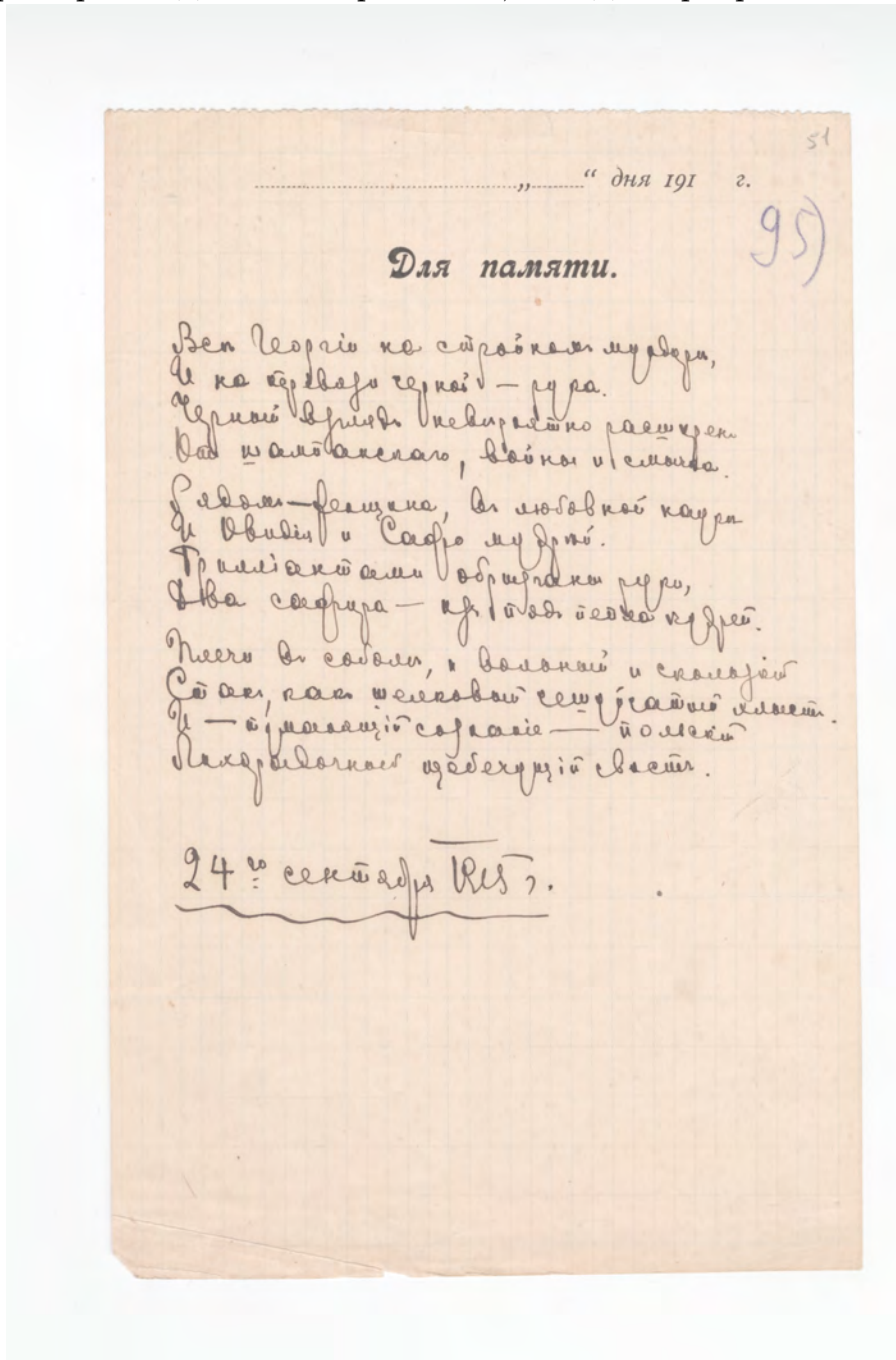 51
„ “ дня 191 г.
95)
Для памяти.
Всѣ Георгіи на стройномъ мундирѣ,
И на перевязи черной — рука.
Черный взглядъ невѣроятно расширенъ
Отъ шампанскаго, войны и смычка.
Рядомъ — женщина, въ любовной наукѣ
И Овидія и Сафо мудрей.
Брилліантами обрызганы руки,
Два сапфира — изъ подъ пепла кудрей.
Плечи въ соболѣ, и вольный и скользкій
Станъ, какъ шелковый чешуйчатый хлыстъ.
И — туманящій сознаніе — польскій
Лихорадочный щебечущій свистъ.
24го сентября 1915 г.